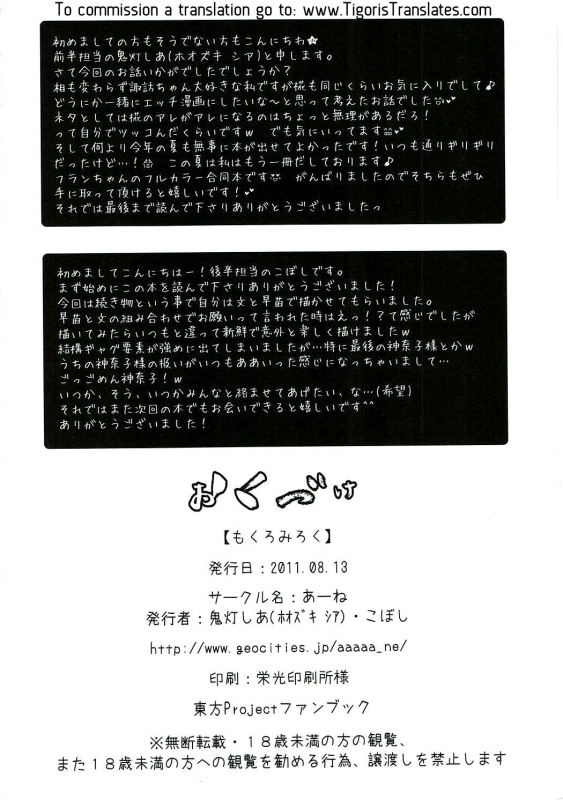 To commission a translation go to: www.TigorisTranslates.com
初めましての方もそうでない方もこんにちわ☆
前半担当の鬼灯しあ(ホオズキ シア)と申します。
さて今回のお話いかがでしたでしょうか?
相も変わらず諏訪ちゃん大好きな私ですが椛も同じくらいお気に入りでして♪
どうにか一緒にエッチ漫画にしたいな~と思って考えたお話でした
ネタとしては椛のアレがアレになるのはちょっと無理があるだろ!
って自分でツッコんだくらいですw でも気にいってます
そして何より今年の夏も無事に本が出せてよかったです!いつも通りギリギリ
だったけど…! この夏は私はもう一冊だしております♪
フランちゃんのフルカラー合同本です がんばりましたのでそちらもぜひ
手に取って頂けると嬉しいです!
それでは最後まで読んで下さりありがとうございましたっ
初めましてこんにちはー!後半担当のこぼしです。
まず始めにこの本を読んで下さりありがとうございました!
今回は続き物という事で自分は文と早苗で描かせてもらいました。
早苗と文の組み合わせでお願いって言われた時はえっ!?て感じでしたが
描いてみたらいつもと違って新鮮で意外と楽しく描けましたw
結構ギャグ要素が強めに出てしまいましたが…特に最後の神奈子様とかw
うちの神奈子様の扱いがいつもああいった感じになっちゃいまして…
ごっごめん神奈子!w
いつか、そう、いつかみんなと絡ませてあげたい、な…(希望)
それではまた次回の本でもお会いできると嬉しいです^^
ありがとうございました!
おくづけ
【もくろみろく】
発行日:2011.08.13
サークル名:あーね
発行者:鬼灯しあ(ﾎｵｽﾞｷ ｼｱ)・こぼし
http://www.geocities.jp/aaaaa_ne/
印刷:栄光印刷所様
東方Projectファンブック
※無断転載・18歳未満の方の観覧、
また18歳未満の方への観覧を勧める行為、譲渡しを禁止します